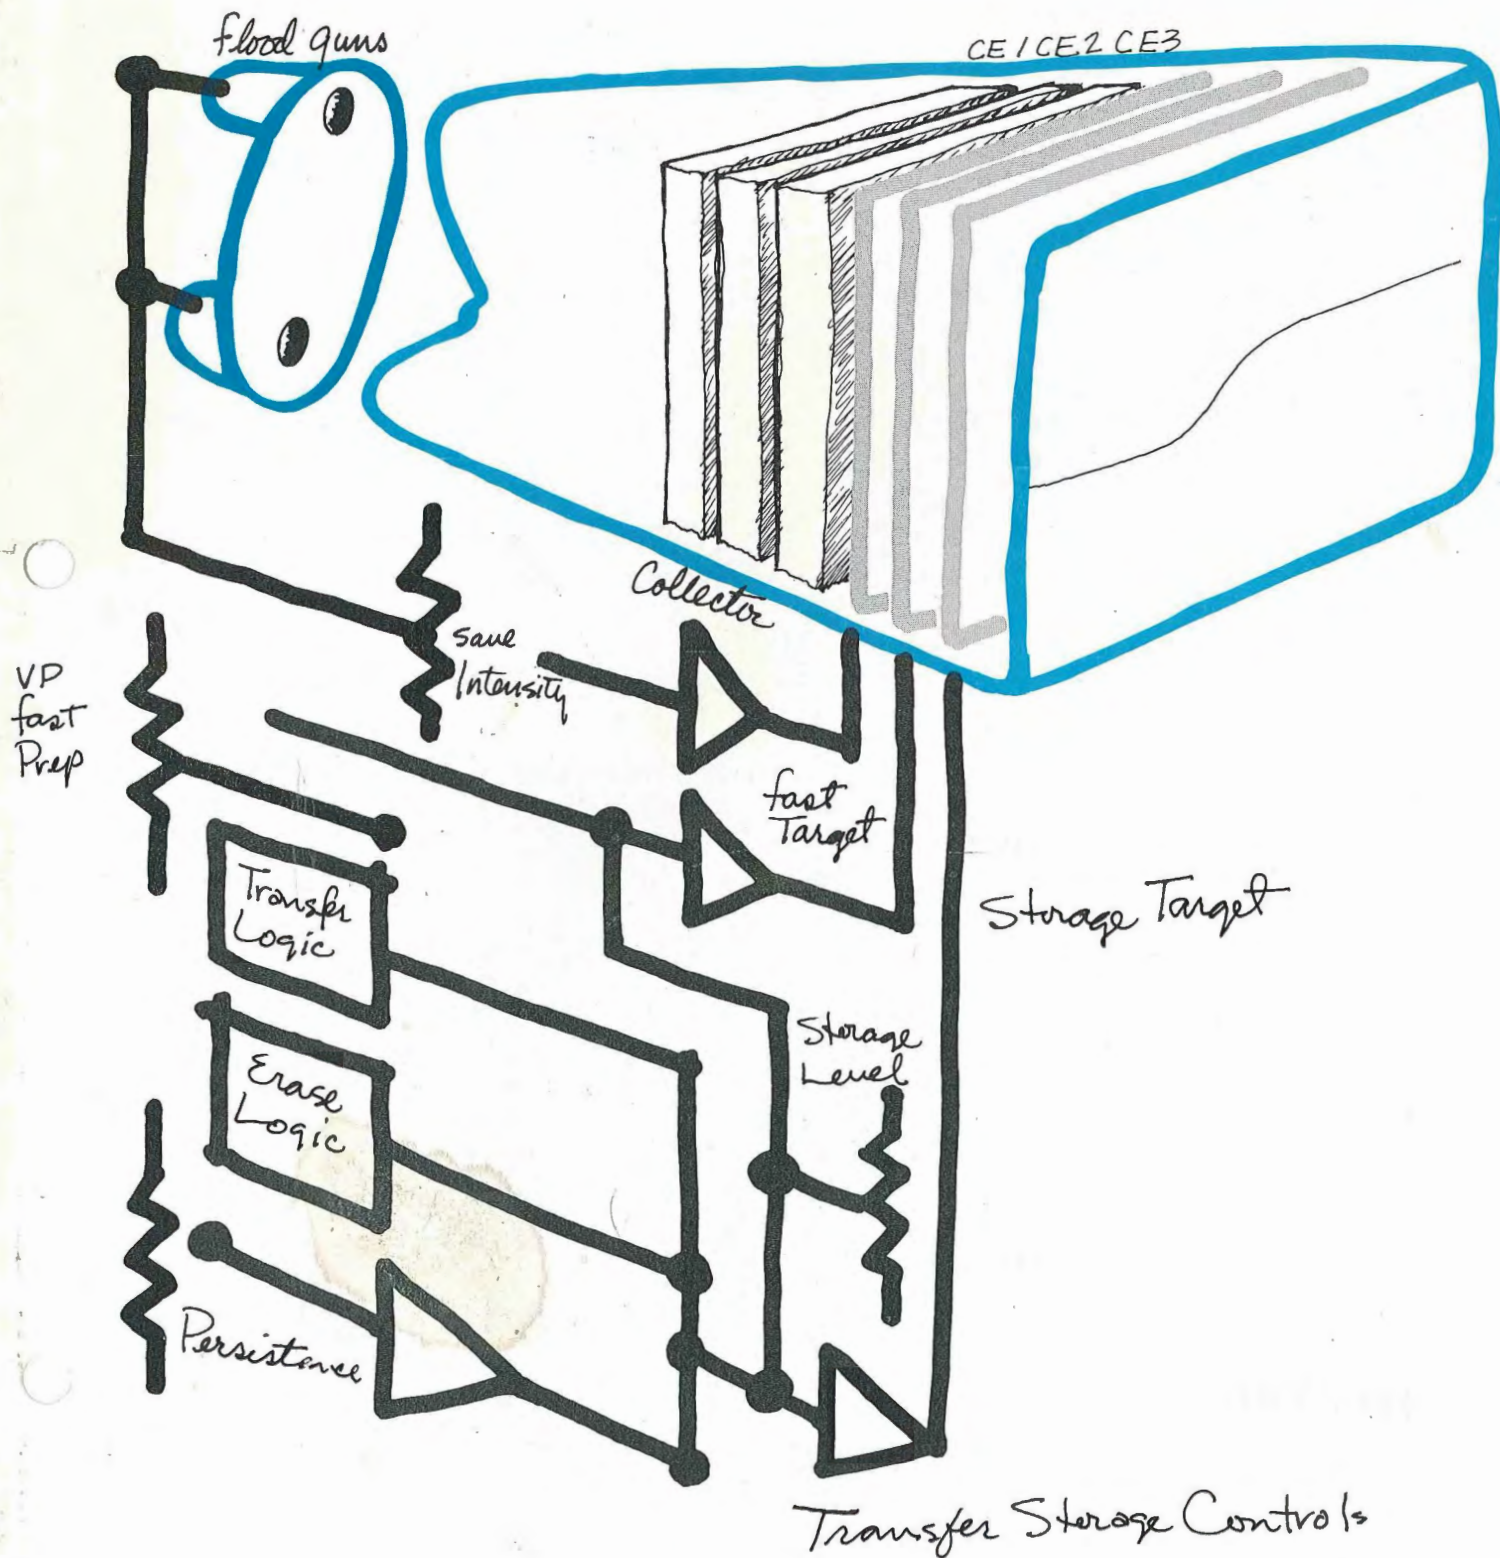 flood guns
CE1 CE2 CE3
Collector
save
Intensity
VP
fast
Prep
fast
Target
Transfer
Logic
Storage Target
Storage
Level
Erase
Logic
Persistence
Transfer Storage Controls